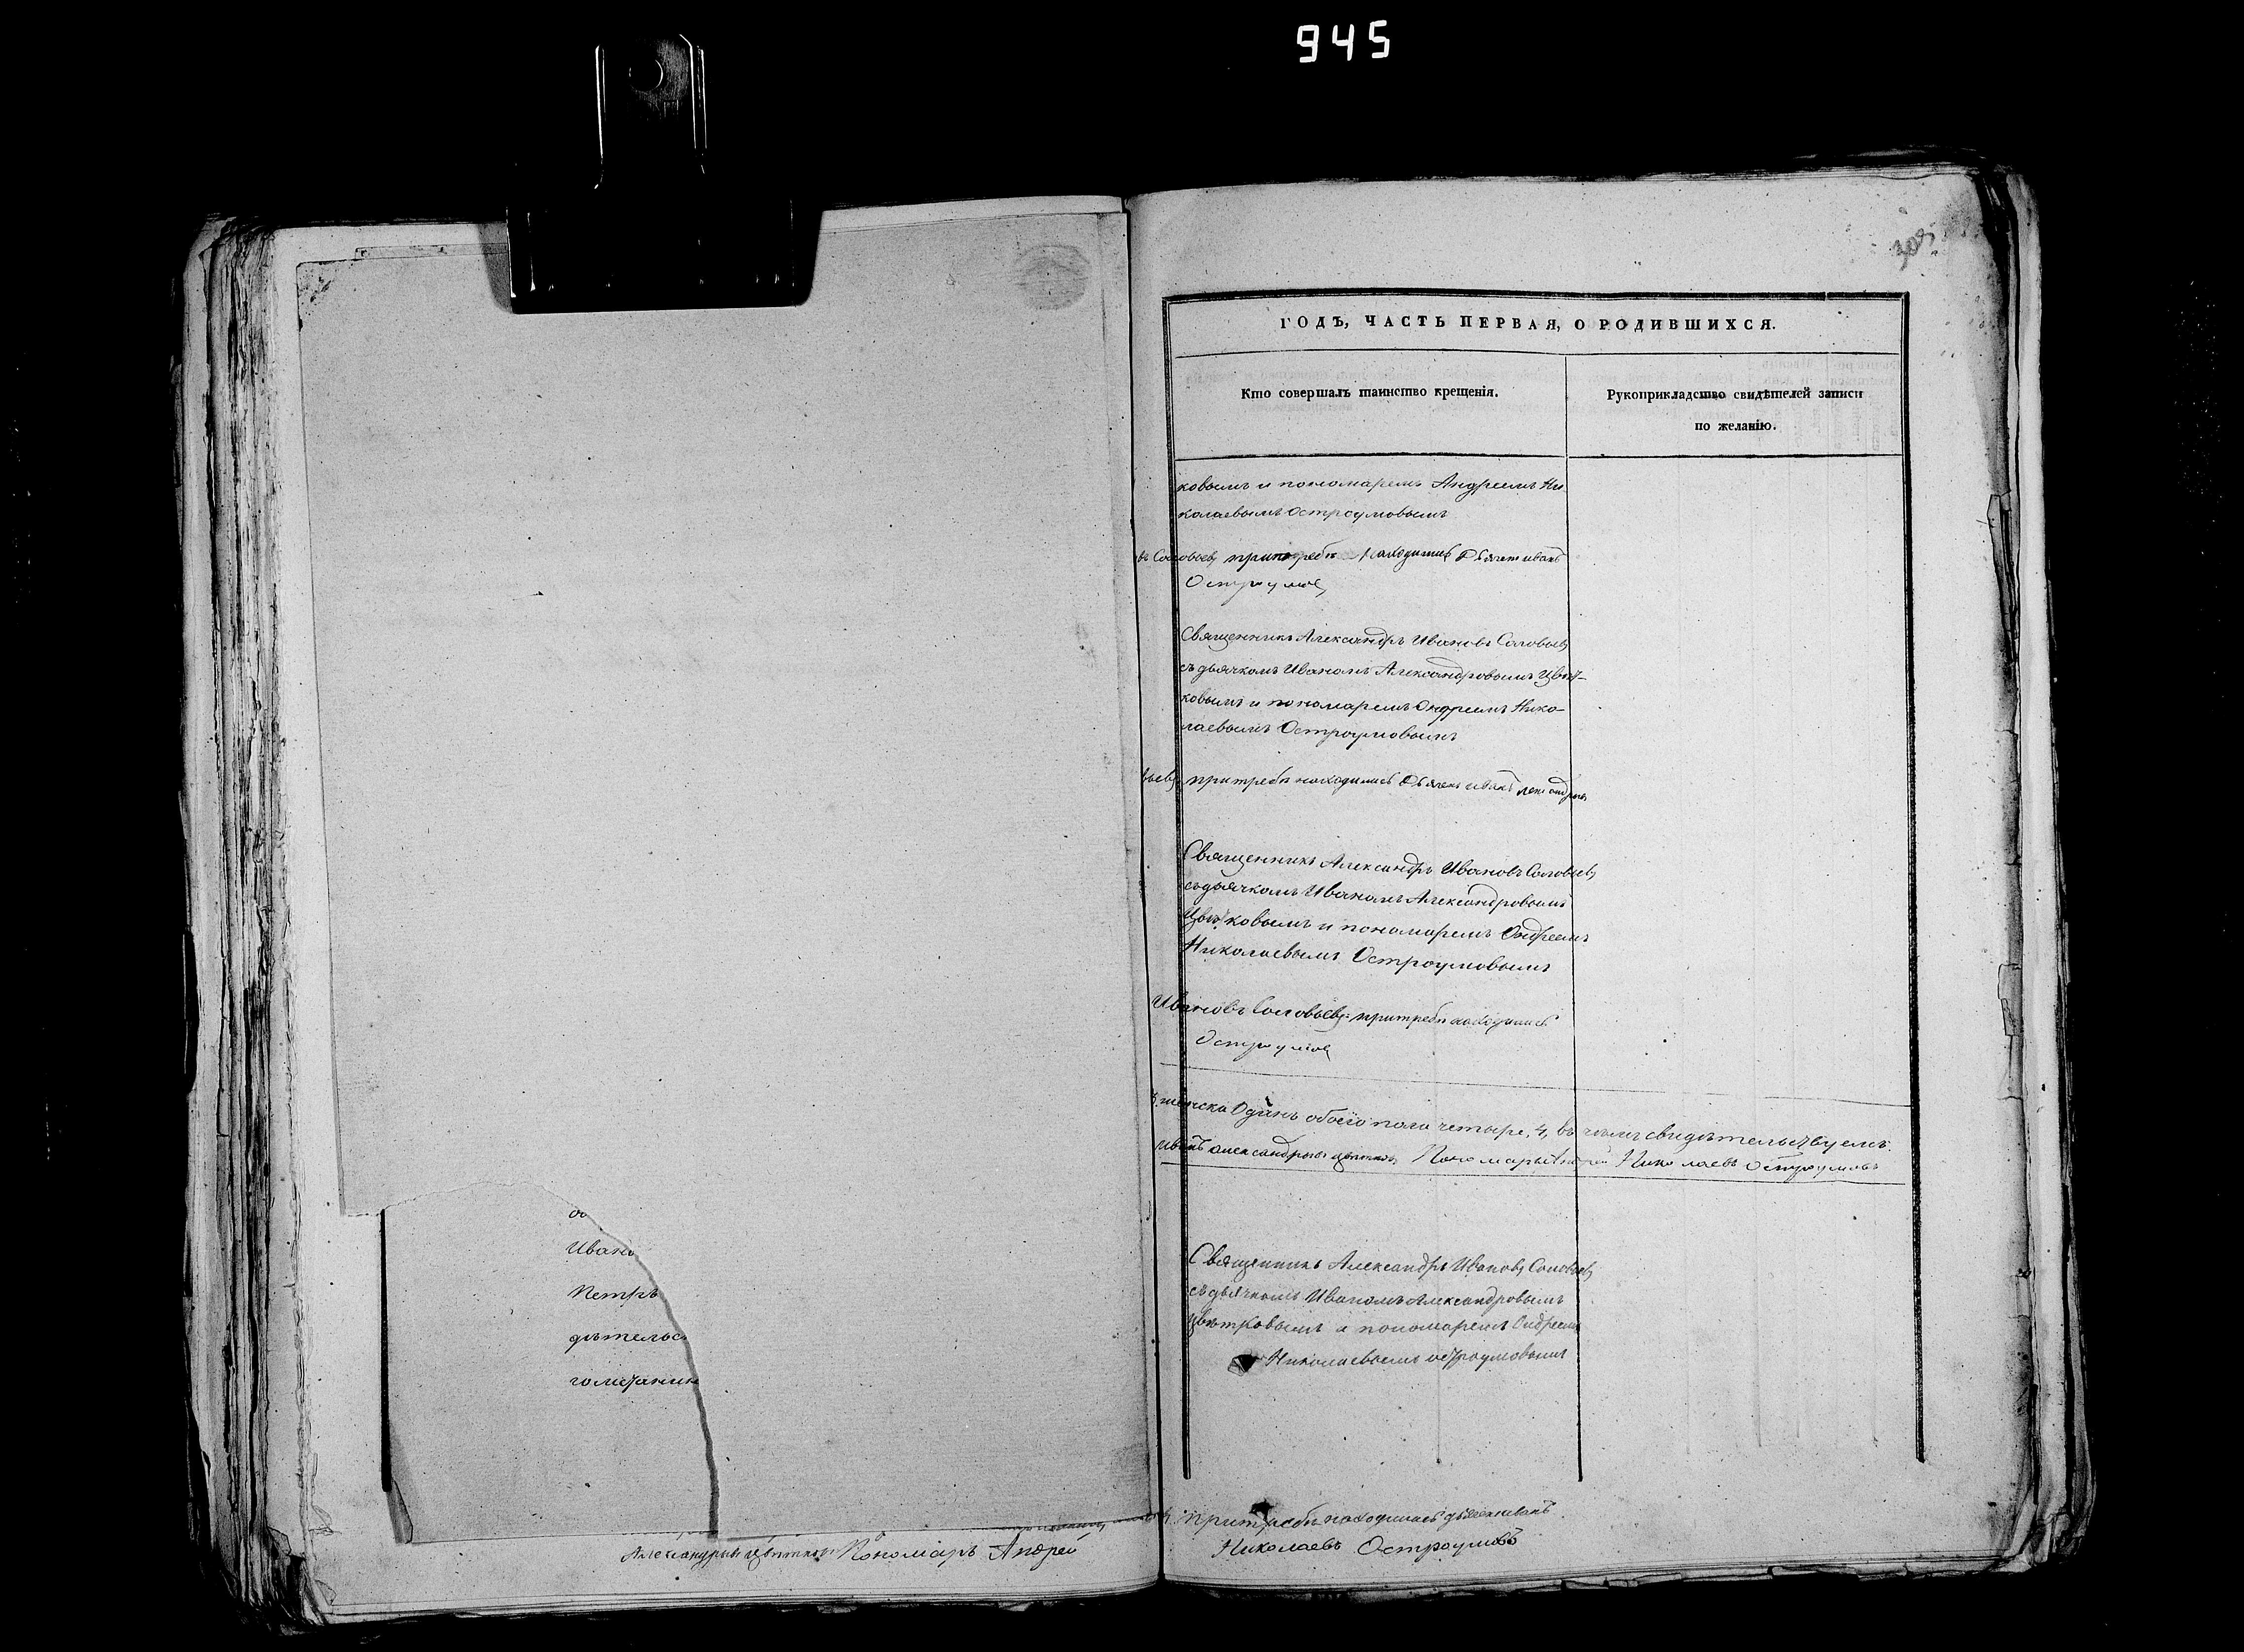 945
309
ГОДЪ, ЧАСТЬ ПЕРВАЯ, О РОДИВШИХСЯ.
Кто совершалъ таинство крещенія.
Рукоприкладство свидѣтелей записи
по желанію.
ковымъ и пономаремъ Андреемъ Ни
колаевымъ Остроумовымъ
въ Соловьевъ при требѣ находились Дьячекъ иванъ
Остроумовъ
Священникъ Александръ Ивановъ Соловьевъ
съ дьячкомъ Иваномъ Александровымъ Цвѣт-
ковымъ и пономаремъ Андреемъ Нико-
лаевымъ Остроумовымъ
вьевъ при требѣ находились Дьячекъ иванъ
Священникъ Александръ Ивановъ Соловьевъ
съ дьячкомъ Иваномъ Александровымъ
Цвѣтковымъ и пономаремъ Андреемъ
Николаевымъ Остроумовымъ
Ивановъ Соловьевъ при требѣ находились
Остроумовъ
женска Одинъ обоего пола четыре, 4, въ чемъ свидѣтельствуемъ
иванъ александровъ цвѣтковъ Пономарь Андрей Николаевъ Остроумовъ
Священникъ Александръ Ивановъ Соловьевъ
съ дьячкомъ Иваномъ Александровымъ
Цвѣтковымъ и пономаремъ Андреемъ
Николаевымъ остроумовымъ
при требѣ находились дьячекъ иванъ
Николаевъ Остроумовъ
Ивано
Петръ
дѣтельс
гомѣчанин
Александровъ цвѣтковъ Пономарь Андрей